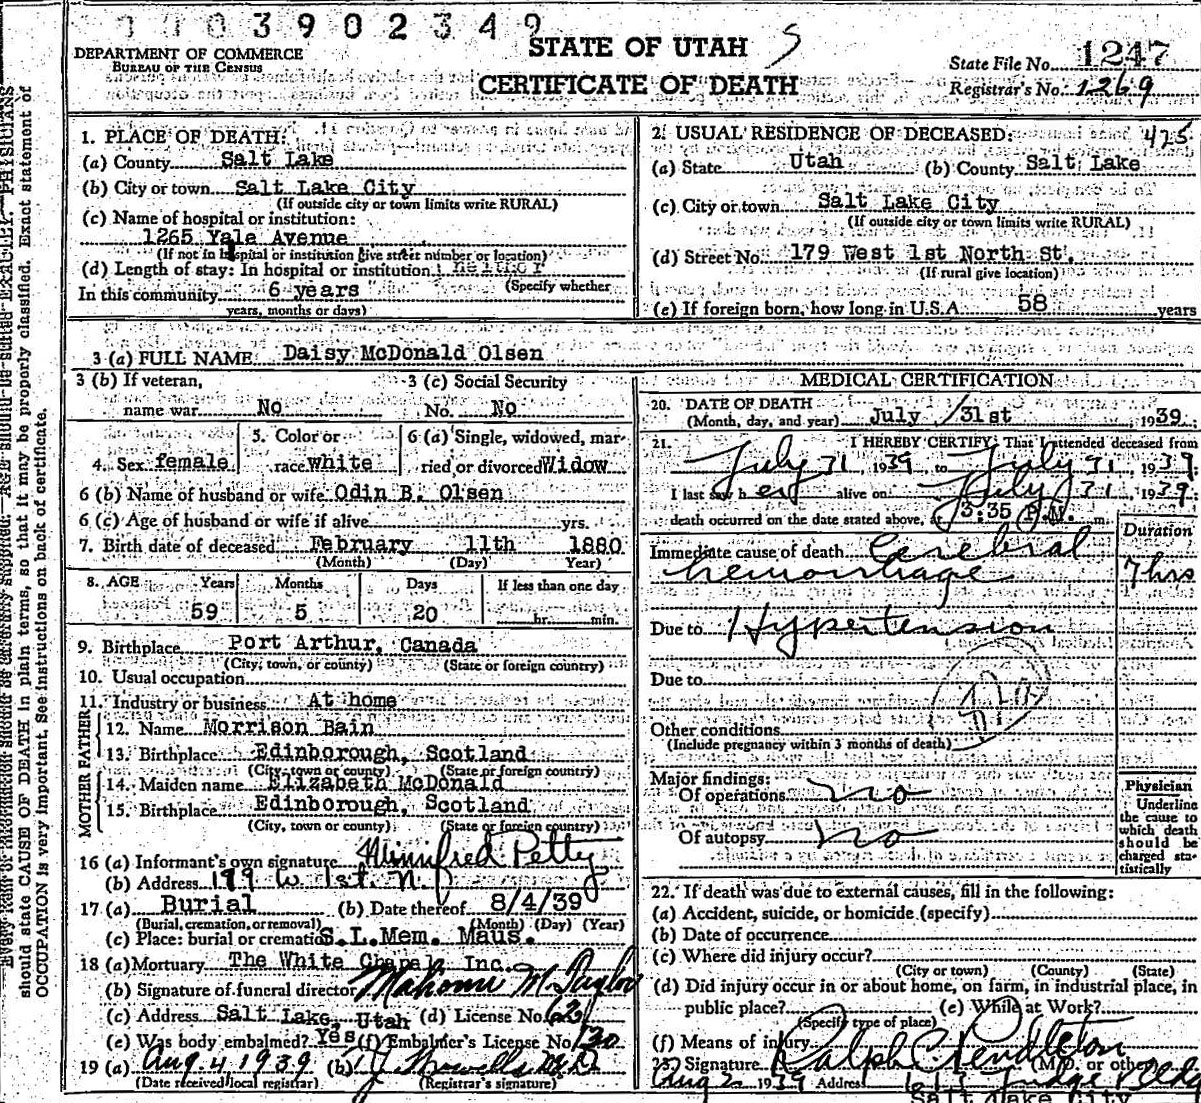 0003902349
STATE OF UTAH
S
DEPARTMENT OF COMMERCE
BUREAU OF THE CENSUS
CERTIFICATE OF DEATH
State File No. 1247
Registrar's No. 1269
1. PLACE OF DEATH:
(a) County Salt Lake
(b) City or town Salt Lake City
(If outside city or town limits write RURAL)
(c) Name of hospital or institution:
1265 Yale Avenue
(If not in hospital or institution give street number or location)
(d) Length of stay: In hospital or institution neither
(Specify whether
In this community 6 years
years, months or days)
2. USUAL RESIDENCE OF DECEASED: 425
(a) State Utah (b) County Salt Lake
(c) City or town Salt Lake City
(If outside city or town limits write RURAL)
(d) Street No. 179 West 1st North St.
(If rural give location)
(e) If foreign born, how long in U.S.A. 58 years
3 (a) FULL NAME Daisy McDonald Olsen
3 (b) If veteran,
name war No
3 (c) Social Security
No. No
4. Sex female
5. Color or
race white
6 (a) Single, widowed, mar-
ried or divorced Widow
6 (b) Name of husband or wife Odin B. Olsen
6 (c) Age of husband or wife if alive yrs.
7. Birth date of deceased February 11th 1880
(Month) (Day) Year)
8. AGE Years Months Days If less than one day
59 5 20 hr. min.
9. Birthplace Port Arthur, Canada
(City, town, or county) (State or foreign country)
10. Usual occupation
11. Industry or business At home
FATHER
12. Name Morrison Bain
13. Birthplace Edinborough, Scotland
(City, town or county) (State or foreign country)
MOTHER
14. Maiden name Elizabeth McDonald
15. Birthplace Edinborough, Scotland
(City, town or county) (State or foreign country)
16 (a) Informant's own signature Winnifred Petty
(b) Address 179 W 1st. N.
17 (a) Burial (b) Date thereof 8/4/39
(Burial, cremation, or removal) (Month) (Day) (Year)
(c) Place: burial or cremation S.L.Mem. Maus.
18 (a) Mortuary The White Chapel Inc.
(b) Signature of funeral director Mahonri M Taylor
(c) Address Salt Lake, Utah (d) License No. 62
(e) Was body embalmed? Yes (f) Embalmer's License No. 130
19 (a) Aug. 4, 1939 (b) T J Howells M.D
(Date received local registrar) (Registrar's signature)
MEDICAL CERTIFICATION
20. DATE OF DEATH
(Month, day, and year) July 31st 1939.
21. I HEREBY CERTIFY, That I attended deceased from
July 31 1939 to July 31, 1939.
I last saw her alive on July 31, 1939.
death occurred on the date stated above, at 3:35 P.M. m.
Duration
Immediate cause of death Cerebral
hemorrhage 7 hrs
Due to Hypertension
Due to
Other conditions
(Include pregnancy within 3 months of death)
Major findings:
Of operations no
Of autopsy no
Physician
Underline
the cause to
which death
should be
charged sta-
tistically
22. If death was due to external causes, fill in the following:
(a) Accident, suicide, or homicide (specify)
(b) Date of occurrence
(c) Where did injury occur?
(City or town) (County) (State)
(d) Did injury occur in or about home, on farm, in industrial place, in
public place? (e) While at Work?
(Specify type of place)
(f) Means of injury
23. Signature Ralph C. Pendleton (M.D. or other)
Aug 2 1939 Address 1013 Judge Bldg
Salt Lake City
should state CAUSE OF DEATH in plain terms, so that it may be properly classified. Exact statement of
OCCUPATION is very important. See instructions on back of certificate.